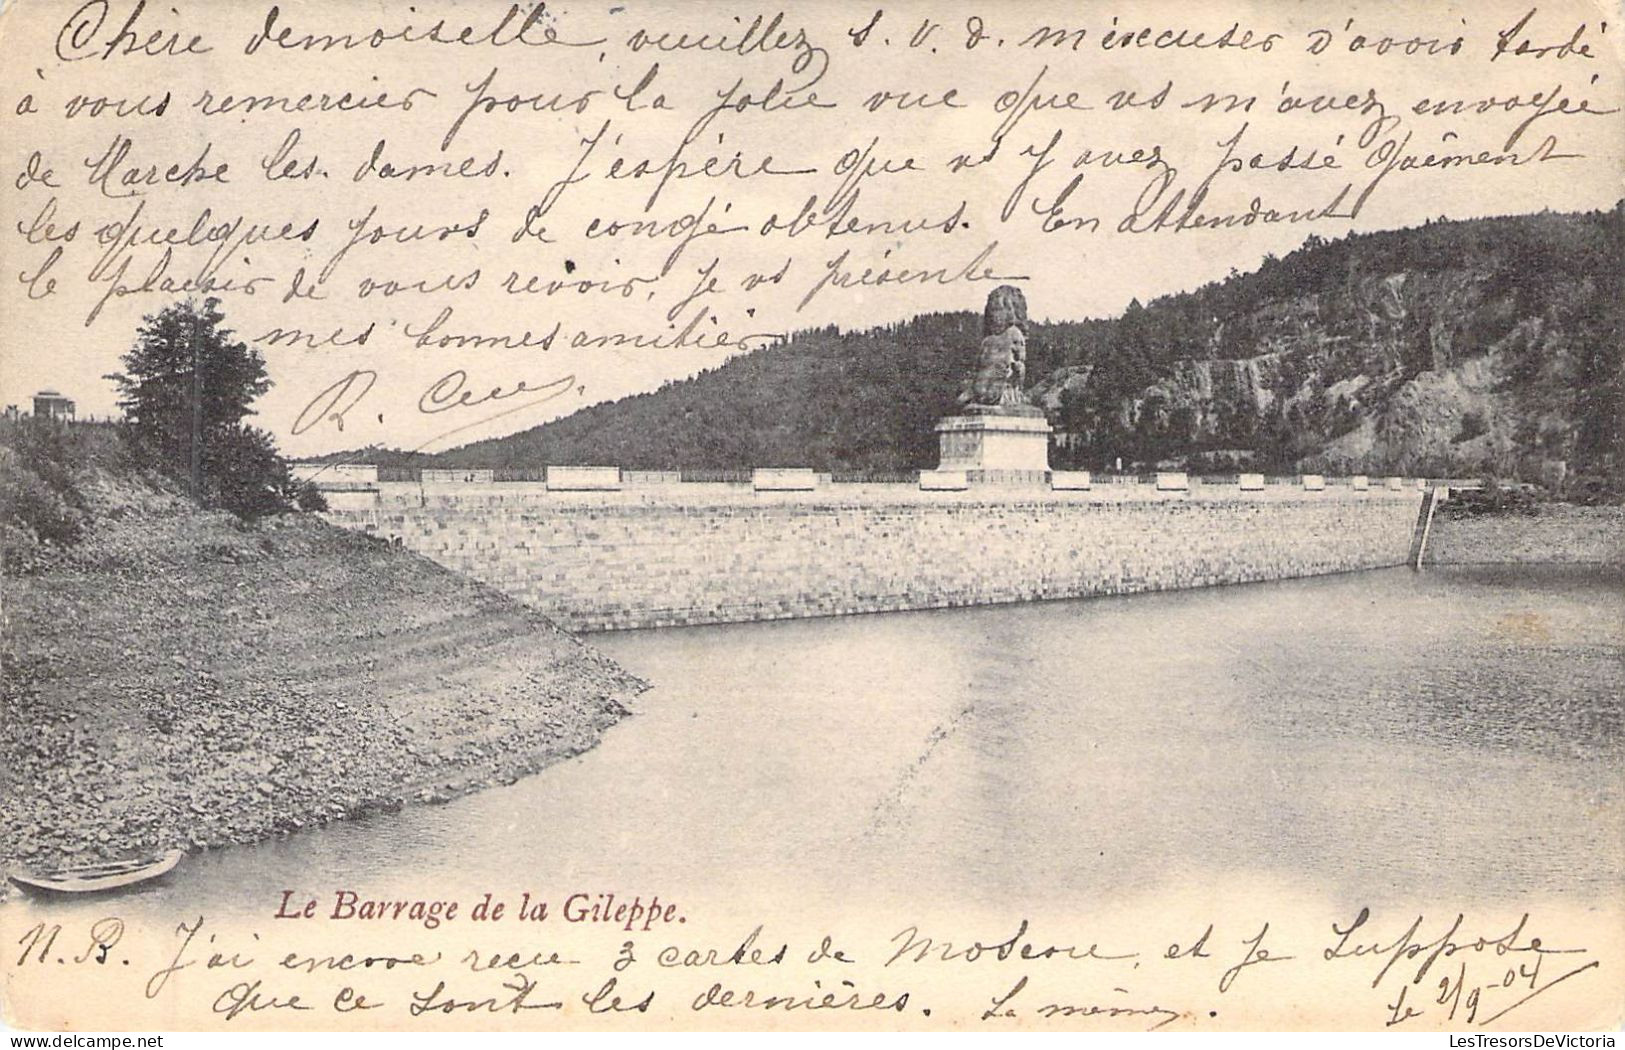 Chère demoiselle, veuillez s. v. d. m'éxcuser d'avoir tardé
à vous remercier pour la jolie vue que vs m'avez envoyée
de Marche les. dames. J'espère que vs y avez passé gaîment
les quelques jours de congé obtenus. En attendant
le plaisir de vous revoir, je vs présente
mes bonnes amitiés
R.
Le Barrage de la Gileppe.
N. B. J'ai encore reçu 3 cartes de Moscou, et je suppose
que ce sont les dernières. La même.
le 2/9-04
LesTresorsDeVictoria